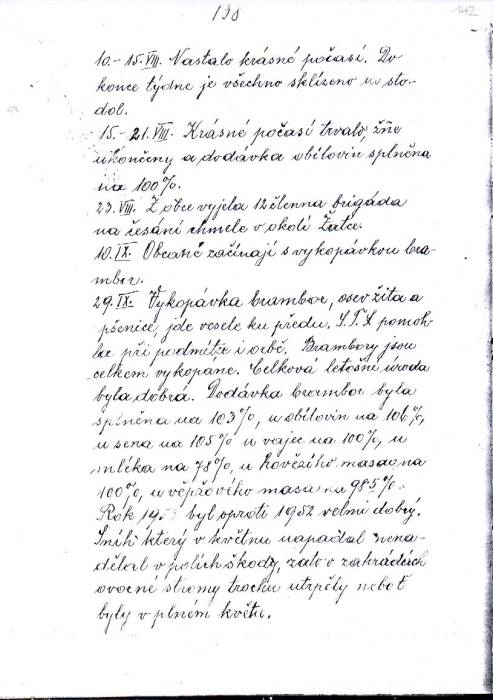 138
142
10.-15.VIII. Nastalo krásné počasí. Do
konce týdne je všechno sklízeno ve sto-
dol.
15.-21.VIII. Krásné počasí trvalo, žně
ukončeny a dodávka obilovin splněna
na 100%.
23.VIII. Z obce vyjela 12 členna brigáda
na česání chmele v okolí Žatce.
10.IX. Občané začínají s vykopávkou bra-
mbor.
29.IX. Vykopávka brambor, osev žita a
pšenice, jde vesele ku předu. S.T.S pomoh-
la při podmítce i orbě. Brambory jsou
celkem vykopane. Celková letošní úroda
byla dobrá. Dodávka brambor byla
splněna na 103%, u obilovin na 106%,
u sena na 105% u vajec na 100%, u
mléka na 78%, u hovězího masa na
100%, u vepřového masa na 98.5%.
Rok byl oproti 1952 velmi dobrý.
Sníh který v květnu napadal nena-
dělal v polích škody, zato v zahrádách
ovocné stromy trochu utrpěly neboť
byly v plném květu.